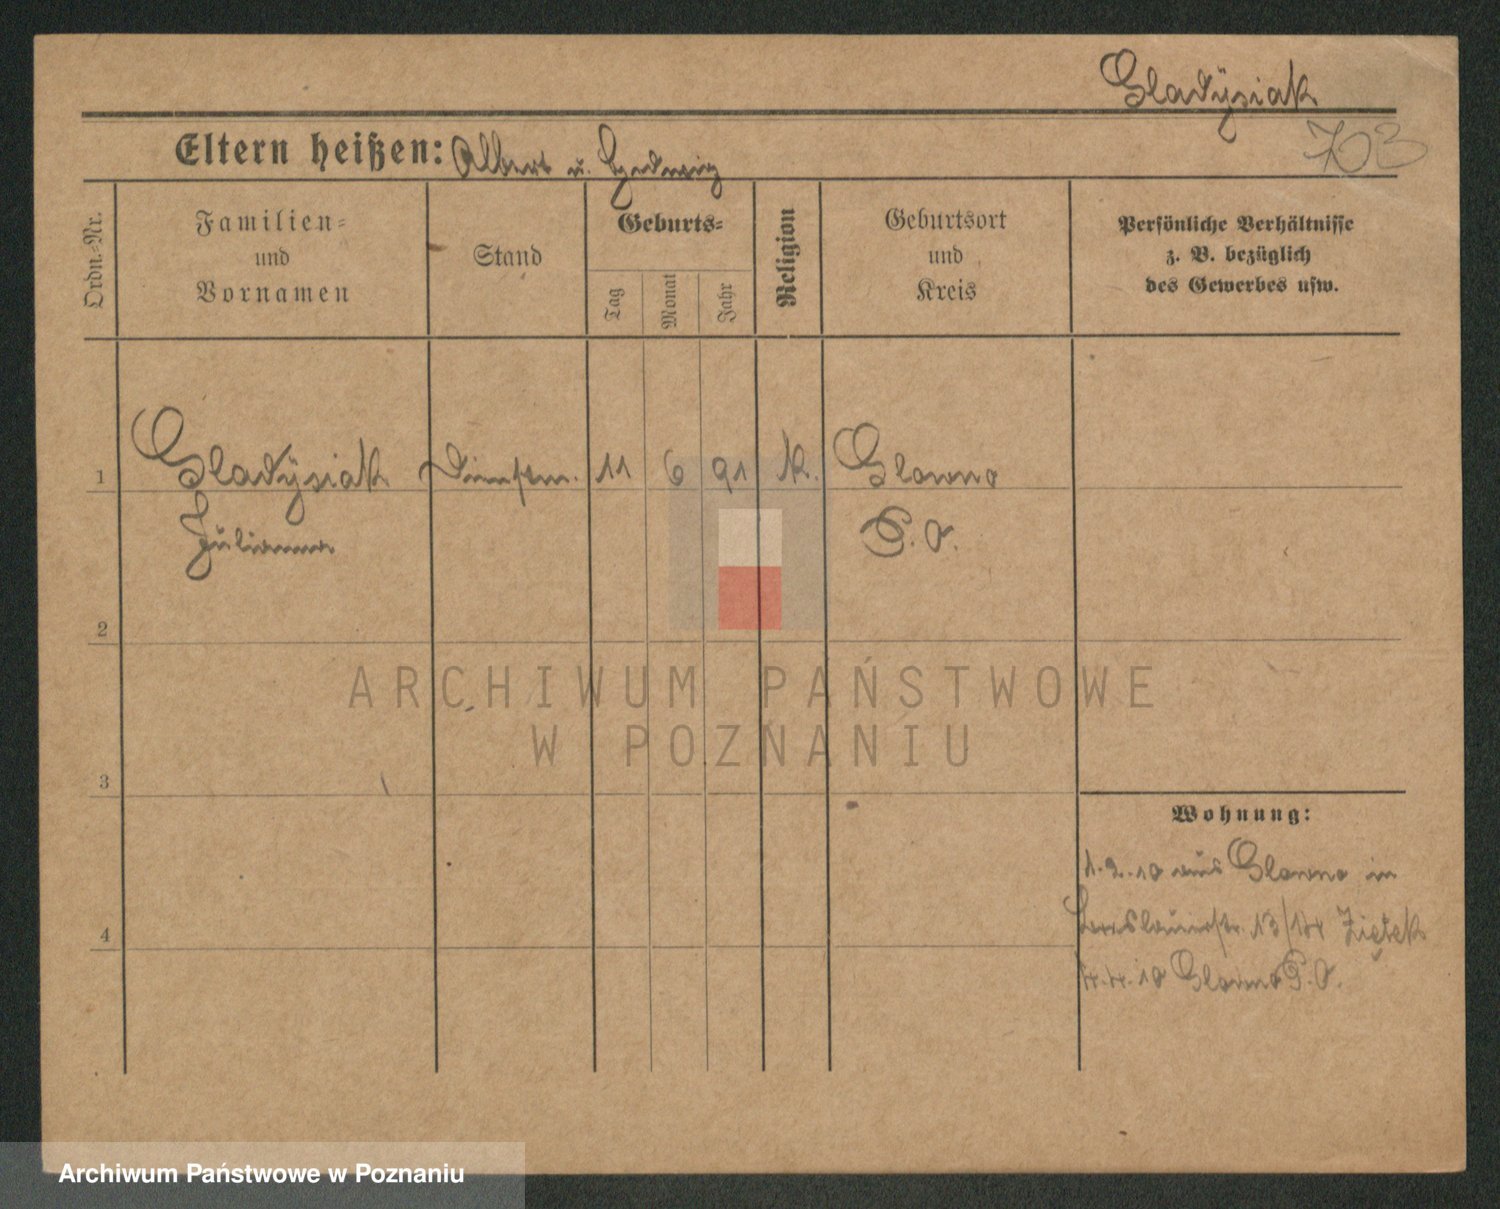 Gladÿsiak
703
Eltern heißen: Albert u. Hedwig
Ordn.-Nr.
Familien-
und
Vornamen
Stand
Geburts-
Tag
Monat
Jahr
Religion
Geburtsort
und
Kreis
Persönliche Verhältnisse
z. B. bezüglich
des Gewerbes usw.
1 Gladÿsiak Dienstm. 11 6 91 K. Glowno
Julianna P. O.
2
ARCHIWUM PAŃSTWOWE
W POZNANIU
3
Wohnung:
1.2.10 aus Glowno in
13/14 Ziętek
4
4.4.10 Glowno P. O.
Archiwum Państwowe w Poznaniu